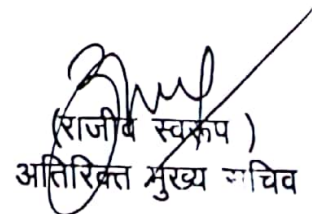 (राजीव स्वरूप )
अतिरिक्त मुख्य सचिव